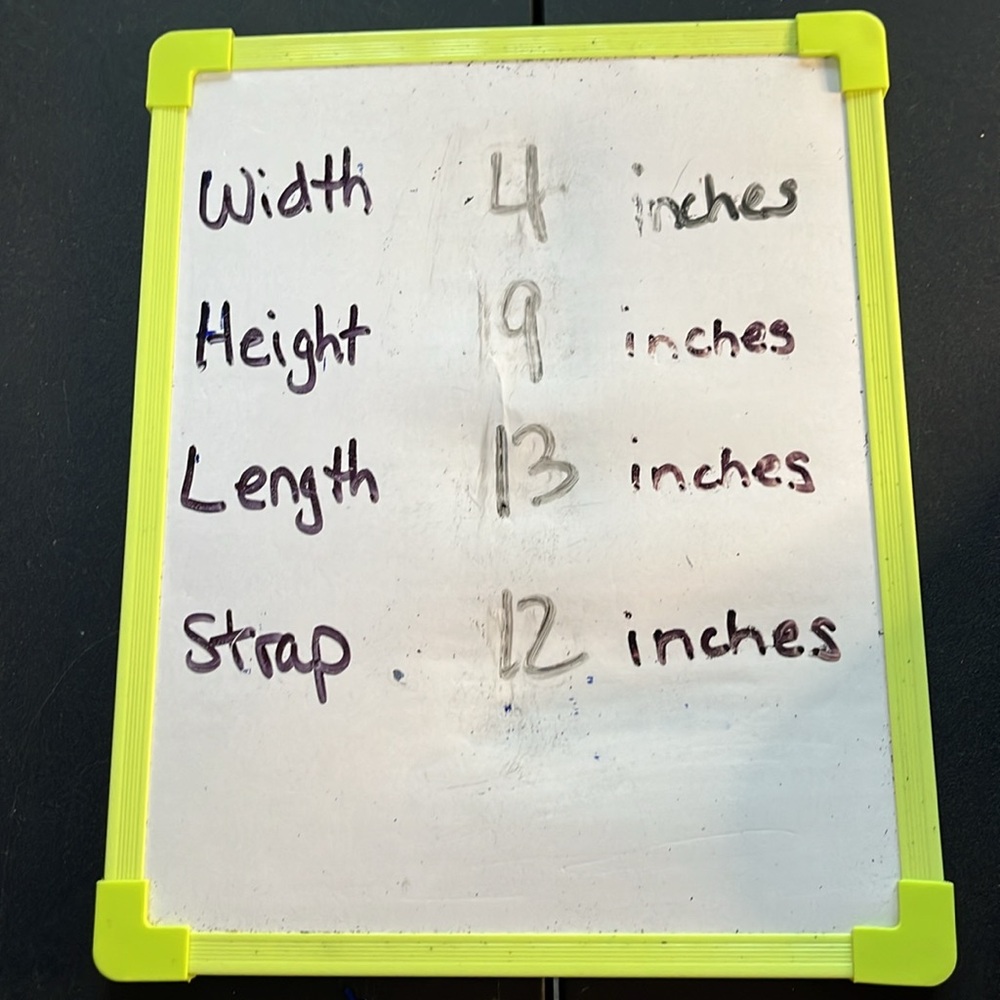 Width 4 inches
Height 9 inches
Length 13 inches
Strap 12 inches